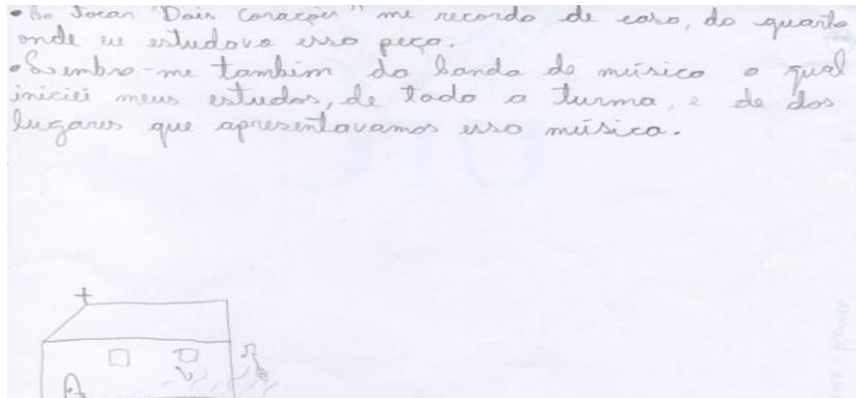 • Ao Tocar "Dois Corações" me recordo de casa, do quarto
onde eu estudava essa peça.
• Lembro-me também da banda de música a qual
iniciei meus estudos, de toda a turma, e de dos
lugares que apresentavamos essa música.